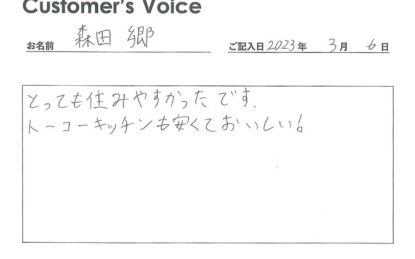 Customer's Voice
お名前 森田 郷 ご記入日 2023年 3月 6日
とっても住みやすかったです.
トーコーキッチンも安くておいしい!